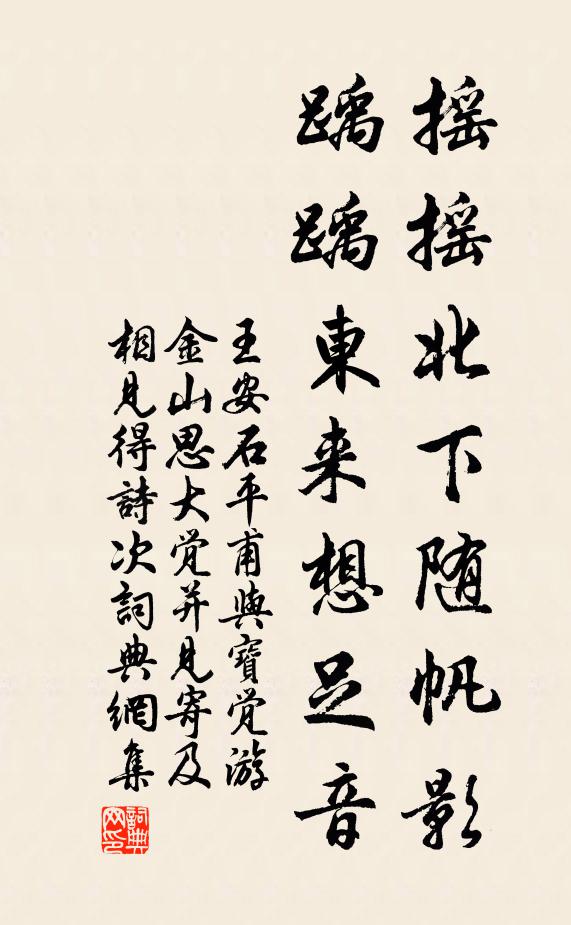 摇摇北下随帆影
踽踽東来想足音
王安石平甫與寶覚游
金山思大覚并見寄及
相見得詩次詞典網集
詞典網印